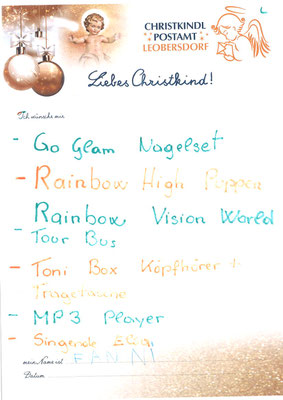 CHRISTKINDL
POSTAMT
LEOBERSDORF
Liebes Christkind!
Ich wünsche mir
- Go Glam Nagelset
- Rainbow High Puppen
Rainbow Vision World
- Tour Bus
- Toni Box Kopfhürer +
- MP3 Player
- Singende
mein Name ist FANNI
Datum